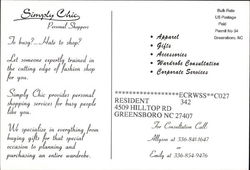 Simply Chic
Personal Shoppers
To busy?....Hate to shop?
Let someone expertly trained in
the cutting edge of fashion shop
for you.
Simply Chic provides personal
shopping services for busy people
like you.
We specialize in everything from
buying gifts for that special
occasion to planning and
purchasing an entire wardrobe.
• Apparel
• Gifts
• Accessories
• Wardrobe Consultation
• Corporate Services
Bulk Rate
US Postage
Paid
Permit No 34
Greensboro, NC
ECRWSS**C027
RESIDENT 342
4509 HILLTOP RD
GREENSBORO NC 27407
For Consultation Call
Allyson at 336-841-1647
or
Emily at 336-854-9476